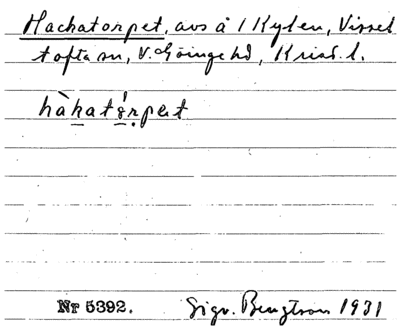 Hackatorpet, avs å 1 Kylen, Vissel
tofta sn, V. Göinge hd, Krist. l.
hàkató̱rpet
Nr 5392. Sigv. Bengtson 1931